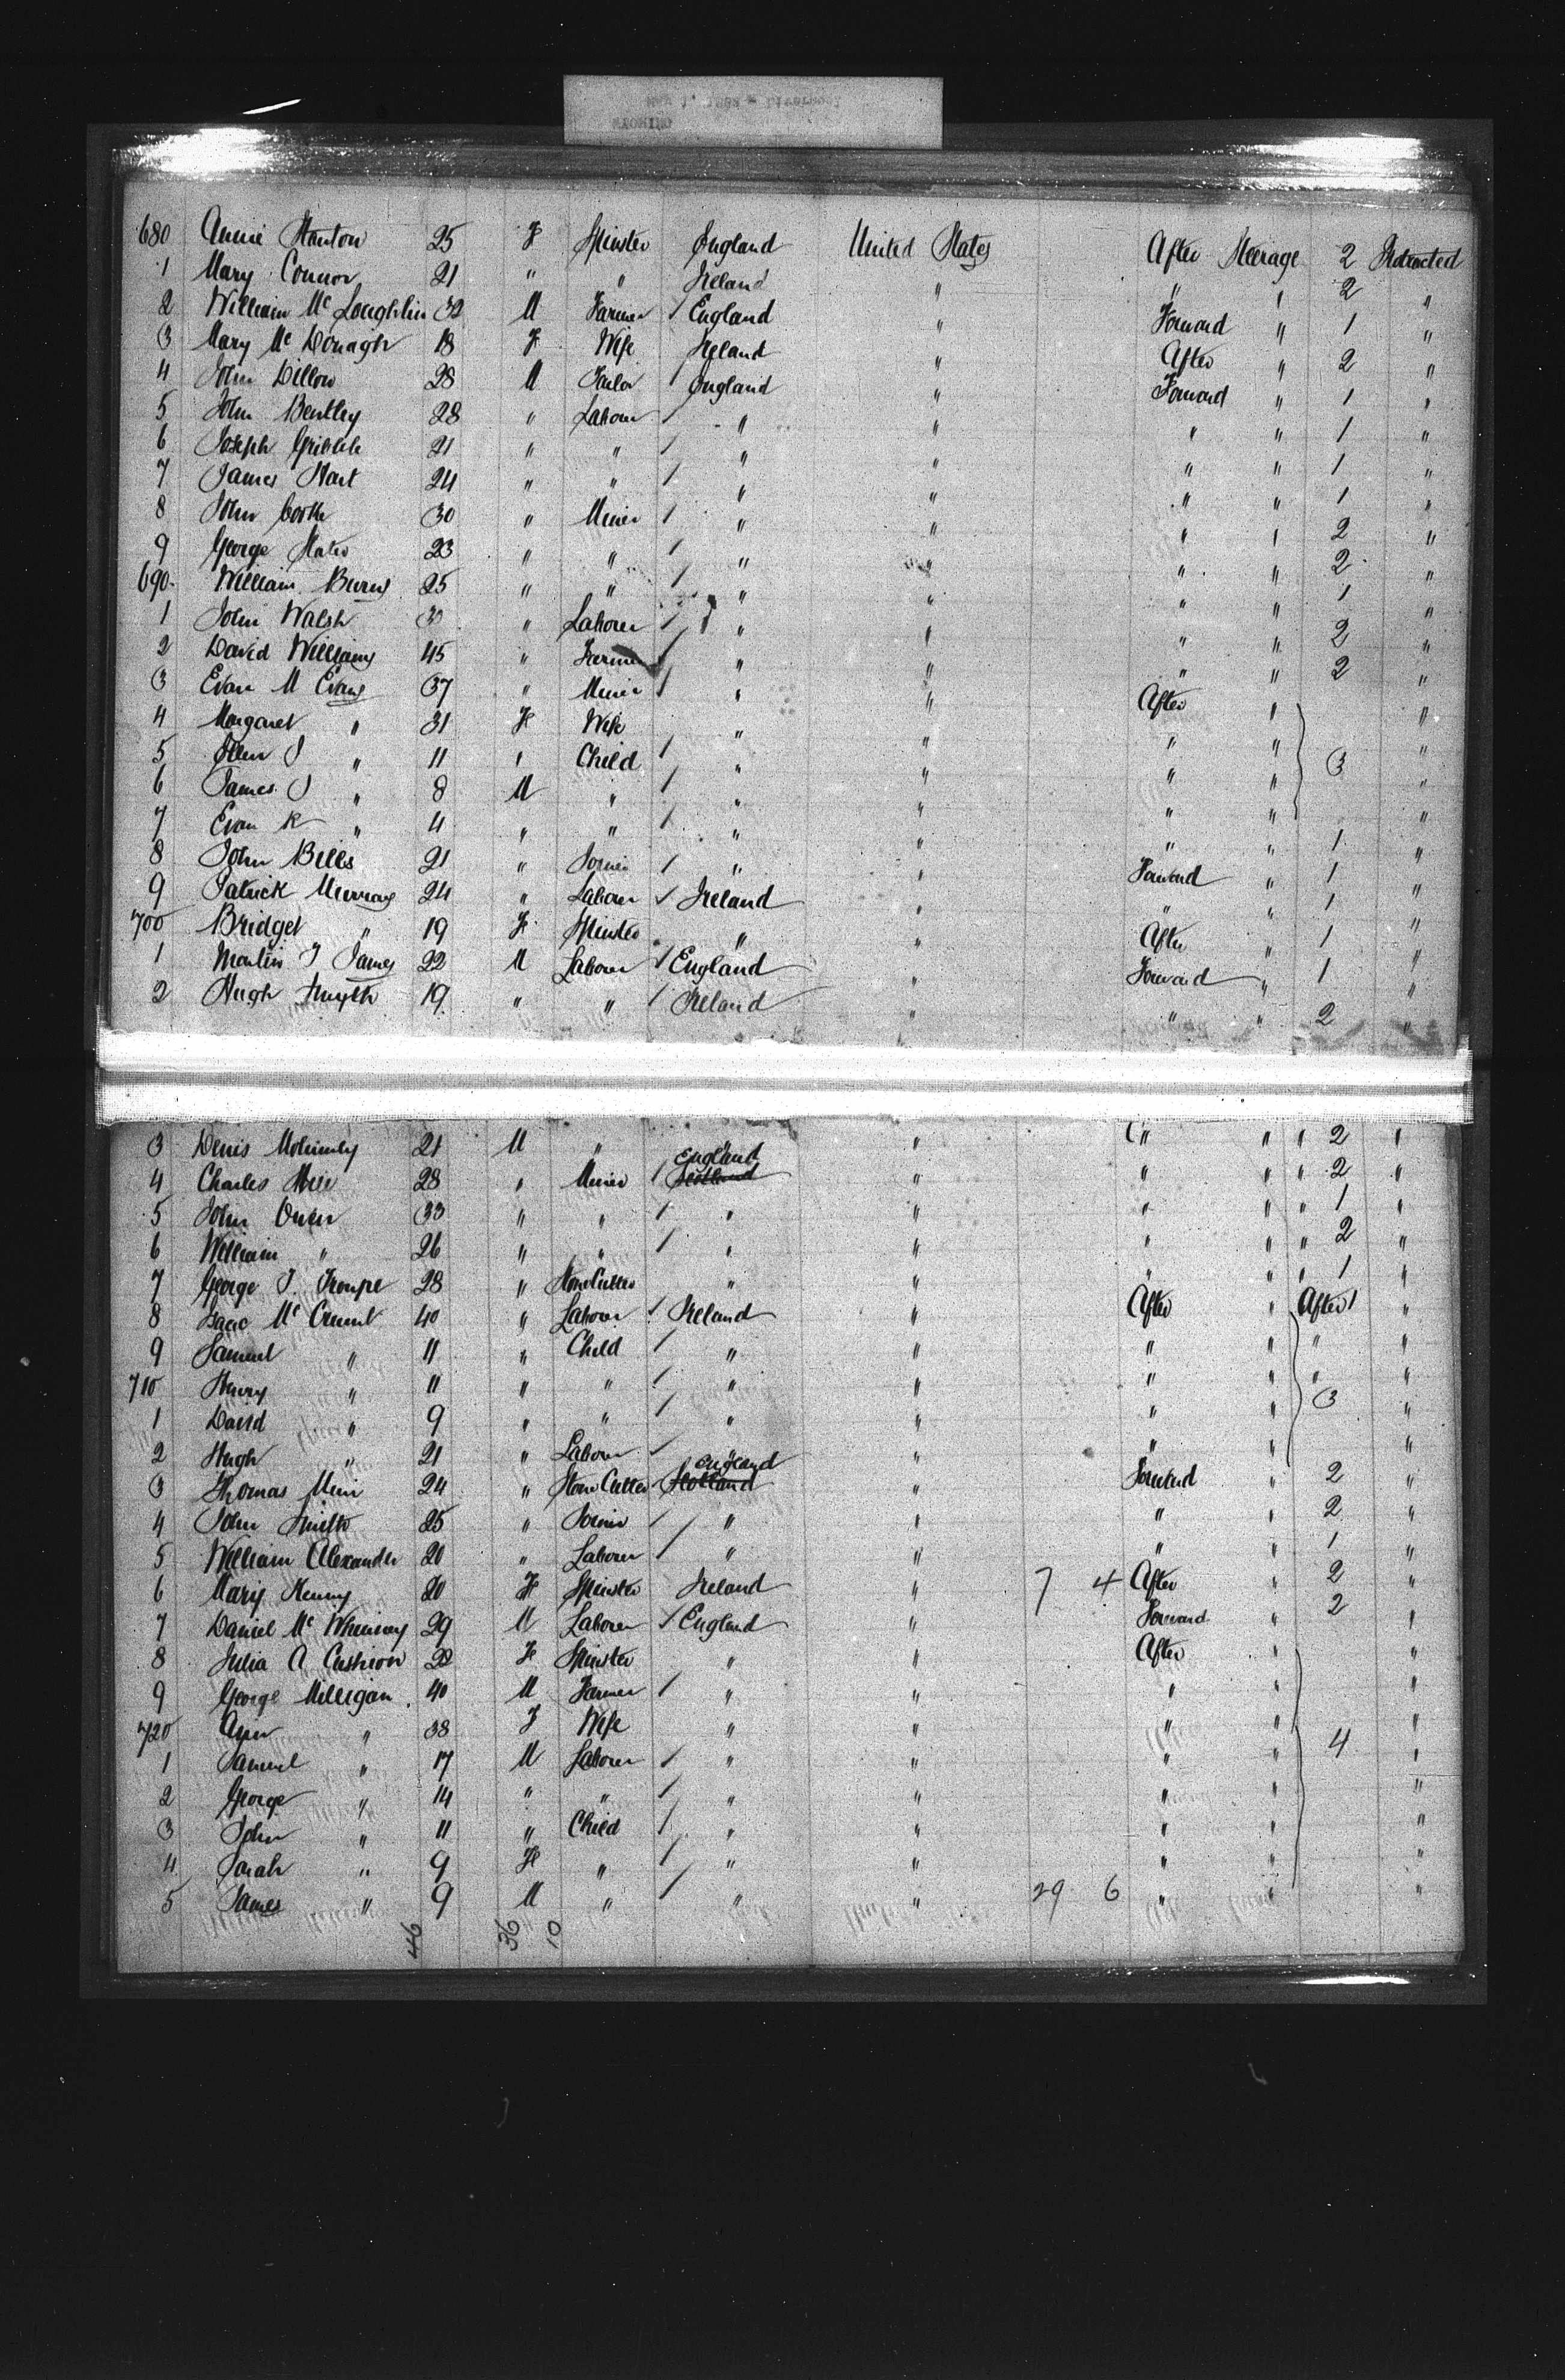 680 Annie Stanton 25 F Spinster England United States After Steerage 2 Protracted
1 Mary Connor 21 " " Ireland " " " 2 "
2 William Mc Loughlin 32 M Farmer / England " Forward " 1 "
3 Mary Mc Donagh 18 F Wife Ireland " After " 2 "
4 John Dillow 28 M Tailor / England " Forward " 1 "
5 John Bentley 28 " Laborer / " " " " 1 "
6 Joseph Gribble 21 " " / " " " " 1 "
7 James Hart 24 " " / " " " " 1 "
8 John Cooke 30 " Miner / " " " " 2 "
9 George Slater 23 " " / " " " " 2 "
690 William Burns 25 " " / " " " " 1 "
1 John Walsh 30 " Laborer / " " " " 2 "
2 David Williams 45 " Farmer / " " " " 2 "
3 Evan M Evans 37 " Miner / " " After " "
4 Margaret " 31 F Wife " " " " "
5 Ellen J " 11 " Child / " " " " 3 "
6 James J " 8 M " / " " " " "
7 Evan R " 4 " " / " " " " 1 "
8 John Bills 21 " Joiner / " " Forward " 1 "
9 Patrick Murray 24 " Laborer / Ireland " " " 1 "
700 Bridget " 19 F Spinster " " After " 1 "
1 J James 22 M Laborer / England " Forward " 1 "
2 Hugh Smyth 19 " " / Ireland " " " 2 "
3 Denis 21 M " " " " " " 2 "
England
4 Charles 28 " Miner / Scotland " " " " 2 "
5 John Owen 33 " " / " " " " " 1 "
6 William " 26 " " / " " " " " 2 "
7 George J. Troupe 28 " Stone Cutter " " " " " 1 "
8 Isaac Mc 40 " Laborer / Ireland " After " After 1 "
9 Samuel " 11 " Child / " " " " " "
710 Henry " 11 " " / " " " " " "
1 David " 9 " " / " " " " 3 "
2 Hugh " 21 " Laborer / " " " " "
England
3 Thomas Muir 24 " Stone Cutter / Scotland " Forward " 2 "
4 John Smith 25 " Joiner / " " " " 2 "
5 William Alexander 20 " Laborer / " " " " 1 "
6 Mary Kenny 20 F Spinster Ireland " 7 4 After " 2 "
7 Daniel Mc Whinney 29 M Laborer / England " Forward " 2 "
8 Julia A Cushion 22 F Spinster " " After " "
9 George Milligan 40 M Farmer / " " " " "
720 Ann " 38 F Wife " " " " "
1 Samuel " 17 M Laborer / " " " " 4 "
2 George " 14 " " / " " " " "
3 John " 11 " Child / " " " " "
4 Sarah " 9 F " / " " " " "
5 James " 9 M " / " " 29 6 " " "
46 36 10